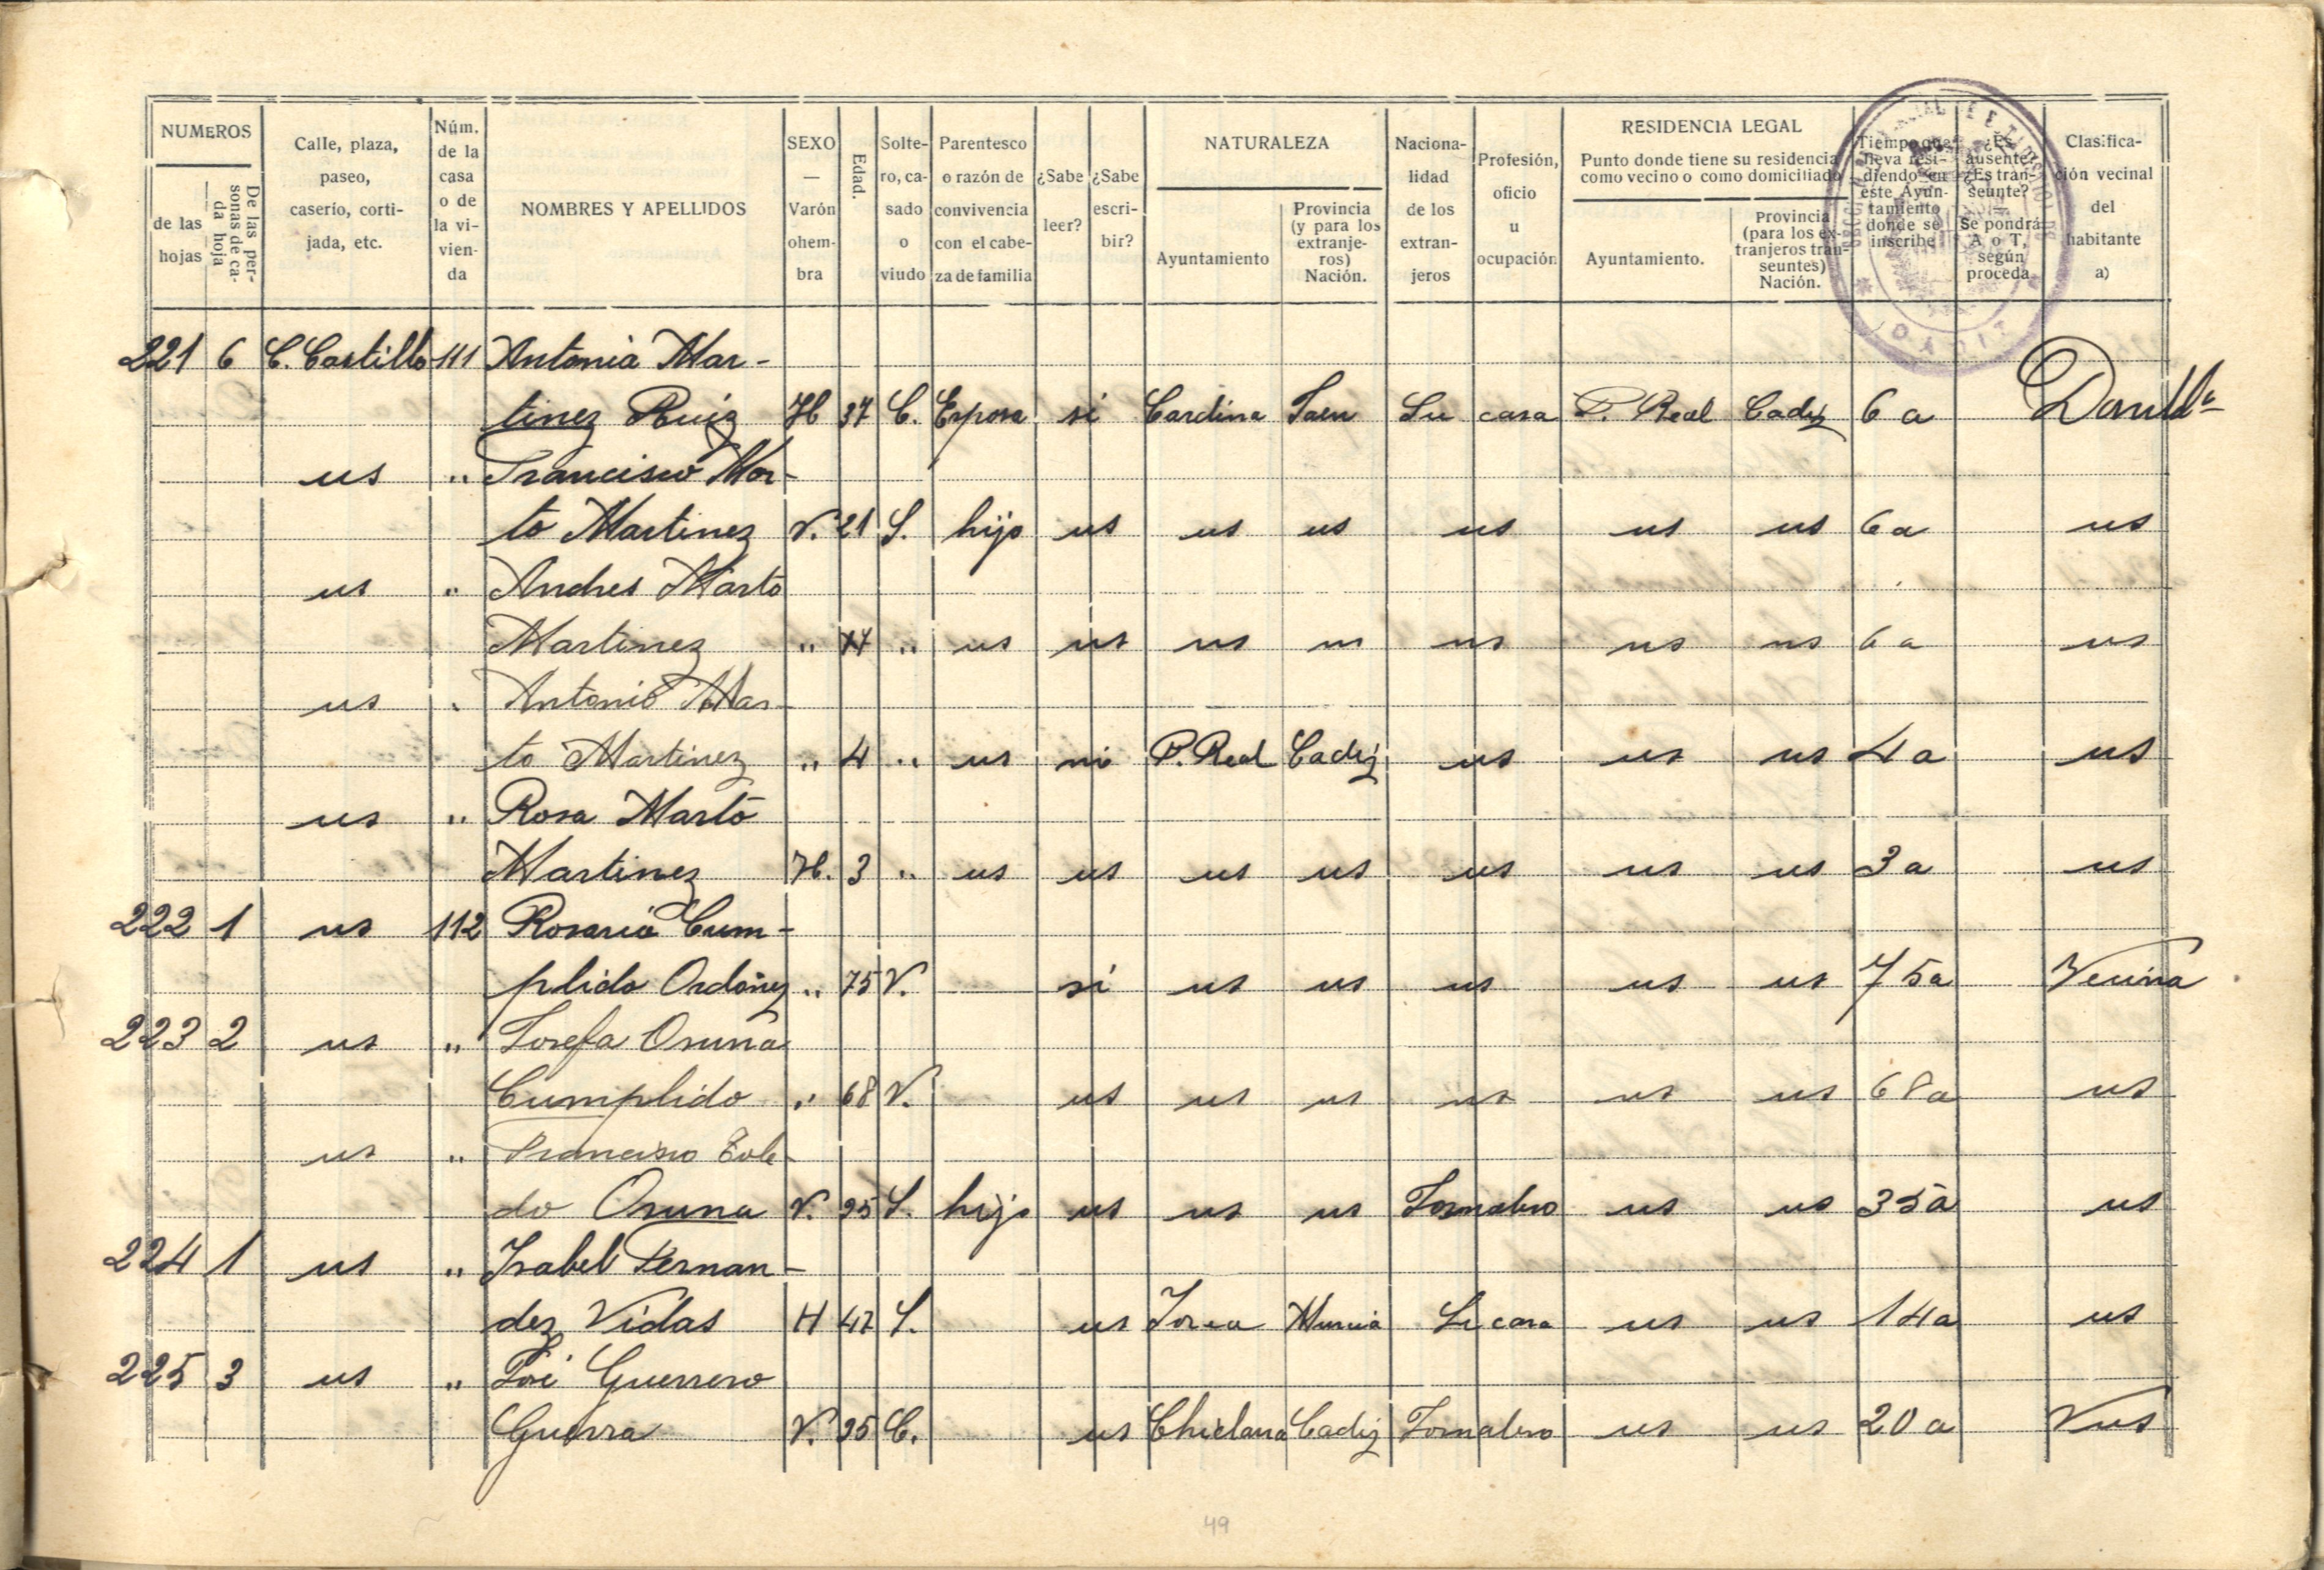 NUMEROS
de las hojas
De las personas de cada hoja
Calle, plaza, paseo, caserío, cortijada, etc.
Núm. de la casa o de la vivienda
NOMBRES Y APELLIDOS
SEXO — Varón o hembra
Edad.
Soltero, casado o viudo
Parentesco o razón de convivencia con el cabeza de familia
¿Sabe leer?
¿Sabe escribir?
NATURALEZA
Ayuntamiento
Provincia (y para los extranjeros) Nación.
Nacionalidad de los extranjeros
Profesión, oficio u ocupación
RESIDENCIA LEGAL
Punto donde tiene su residencia como vecino o como domiciliado
Ayuntamiento.
Provincia (para los extranjeros transeuntes) Nación.
Tiempo que lleva residiendo en este Ayuntamiento donde se inscribe
¿Es ausente? ¿Es transeunte? — Se pondrá A o T, según proceda
Clasificación vecinal del habitante a)
CADIZ
221 6 C. Castillo 111 Antonia Mar-
tinez Ruiz H 37 C. Esposa si Carolina Jaen Su casa P. Real Cadiz 6 a
us " Francisco Mar-
to Martinez V. 21 S. hijo us us us us us us 6 a us
us " Andres Marto
Martinez " " us us us us us us us 6 a us
us " Antonio Mar-
to Martinez " 4 " us no P. Real Cadiz us us us 4 a us
us " Rosa Marto
Martinez H. 3 " us us us us us us us 3 a us
222 1 us 112 Rosario Cum-
plido Ordoñez " 75 V. si us us us us us 75 a Vecina
223 2 us " Josefa Osuna
Cumplido " 68 V. us us us us us us 68 a us
us " Francisco Tole-
do Osuna V. 35 S. hijo us us us Jornalero us us 35 a us
224 1 us " Isabel Fernan-
dez Vidas H 47 S. us Lorca Murcia Su casa us us 14 a us
225 3 us " José Guerrero
Guerra V. 35 C. us Chiclana Cadiz Jornalero us us 20 a us
49